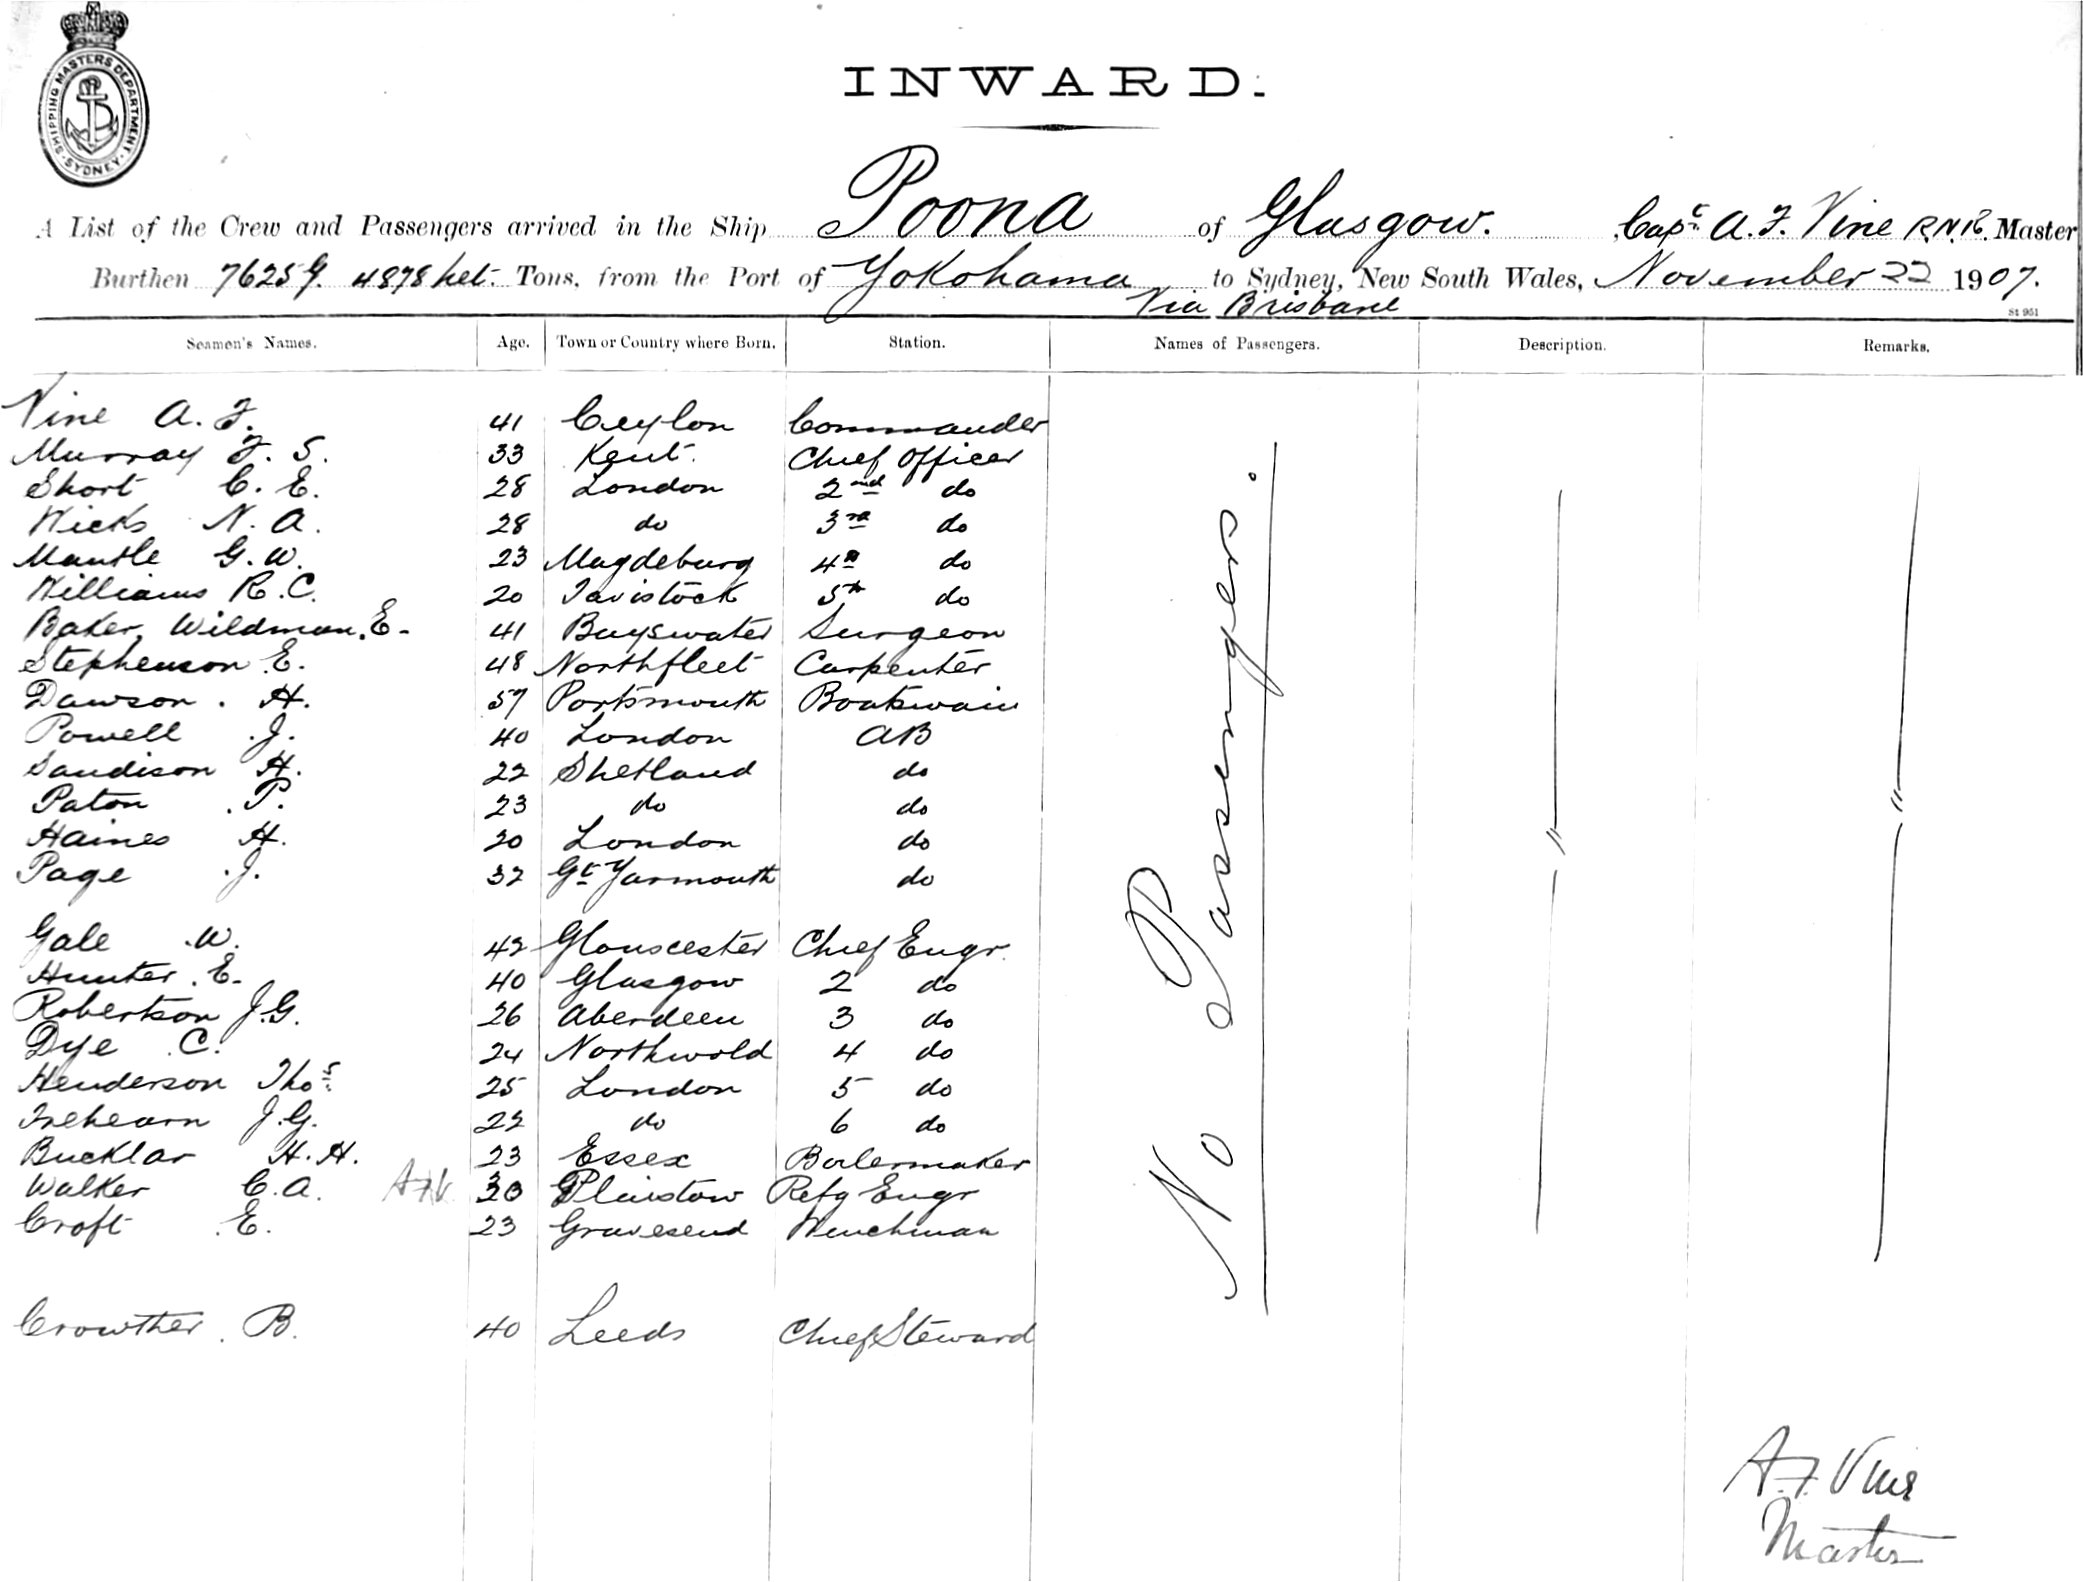 SHIPPING MASTERS DEPARTMENT. SYDNEY
INWARD.
A List of the Crew and Passengers arrived in the Ship Poona of Glasgow. Capt. A. F. Vine R.N.R. Master
Burthen 7625 G. 4878 Net. Tons, from the Port of Yokohama to Sydney, New South Wales, November 22 1907.
Via Brisbane
St 951
Seamen's Names. Age. Town or Country where Born. Station. Names of Passengers. Description. Remarks.
Vine A. F. 41 Ceylon Commander
Murray F. S. 33 Kent. Chief Officer
Short C. E. 28 London 2nd do
Wicks N. A. 28 do 3rd do
Mantle G. W. 23 Magdeburg 4th do
Williams R. C. 20 Tavistock 5th do
Baker, Wildman. E- 41 Bayswater Surgeon
Stephenson E. 48 Northfleet Carpenter
Dawson . H. 57 Portsmouth Boatswain
Powell .J. 40 London AB
Sandison H. 22 Shetland do
Paton .P. 23 do do
Haines H. 20 London do
Page .J. 32 Gt Yarmouth do
Gale .W. 42 Glouscester Chief Engr.
Hunter . E. 40 Glasgow 2 do
Robertson J.G. 26 Aberdeen 3 do
Dye .C. 24 Northwold 4 do
Henderson Thos. 25 London 5 do
Trehearn J.G. 22 do 6 do
Bucklar H. H. 23 Essex Boilermaker
Walker C. A. AFV 30 Plaistow Refg Engr
Croft .E. 23 Gravesend Winchman
Crowther . B. 40 Leeds Chief Steward
No Passengers.
"
"
A. F. Vine
Master